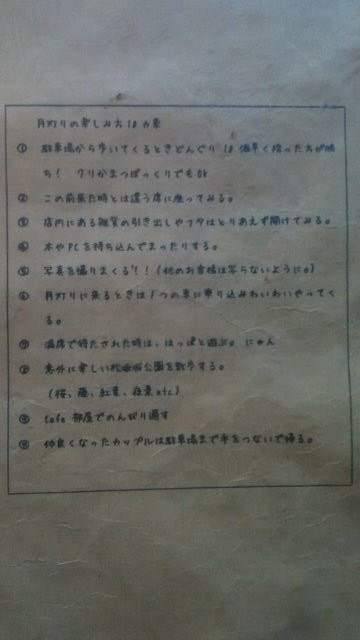 月灯りの楽しみ方10カ条
① 駐車場から歩いてくるときどんぐり10個早く拾った方が勝
ち! クリかまつぼっくりでもOK
② この前来た時とは違う席に座ってみる。
③ 店内にある雑貨の引き出しやフタはとりあえず開けてみる。
④ 本やPCを持ち込んでまったりする。
⑤ 写真を撮りまくる!!(他のお客様は写らないように。)
⑥ 月灯りに来るときは1つの車に乗り込みわいわいやってく
る。
⑦ 満席で待たされた時は、はっぱと遊ぶ。にゃん
⑧ 意外に楽しい松坂城公園を散歩する。
(桜、藤、紅葉、夜景etc)
⑨ Cafe部屋でのんびり過す
⑩ 仲良くなったカップルは駐車場まで手をつないで帰る。